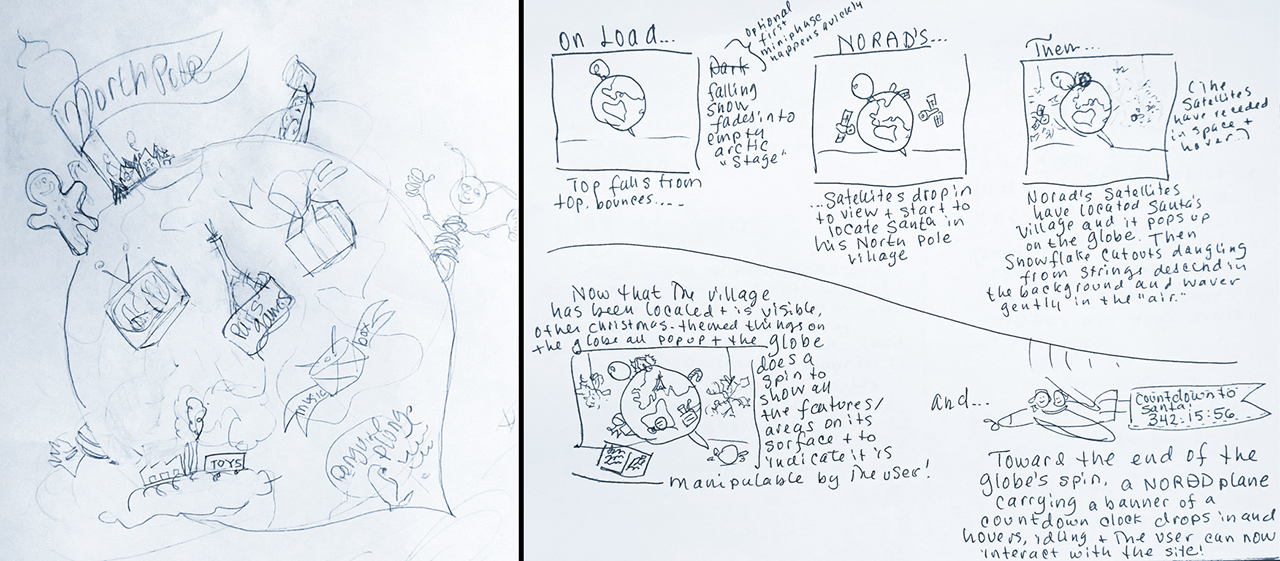 North Pole
Paris
games
music box
Penguin
TOYS
On Load...
optional
first
miniphase
happens quickly
Dark
falling
snow
fades into
empty
arctic
"Stage"
Top falls from
top, bounces....
NORAD'S...
...Satellites drop in
to view + start to
locate Santa in
his North Pole
village
Then...
(The
Satellites
have receded
in space +
hover...)
Norad's Satellites
have located Santa's
village and it pops up
on the globe. Then
Snowflake cutouts dangling
from strings descend in
the background and waver
gently in the "air."
Now that the village
has been located + is visible,
other Christmas-themed things on
the globe all pop up + the globe
does a
spin to
show all
the features/
areas on its
sorface + to
indicate it is
manipulable by the user!
and...
Countdown to
Santa:
342:15:56
Toward the end of the
globe's spin, a NORAD plane
carrying a banner of a
countdown clock drops in and
hovers, idling + the user can now
interact with the site!